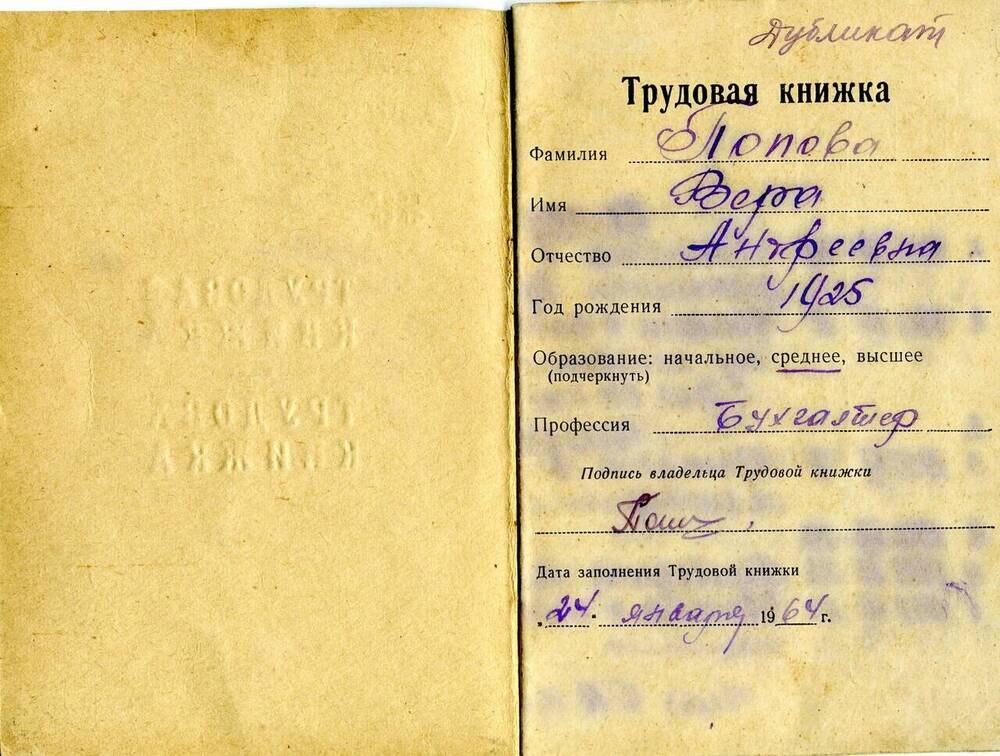 Дубликат
Трудовая книжка
Фамилия Попова
Имя Вера
Отчество Андреевна
Год рождения 1925
Образование: начальное, среднее, высшее
(подчеркнуть)
Профессия Бухгалтер
Подпись владельца Трудовой книжки
Дата заполнения Трудовой книжки
„24" января 1964 г.
ТРУДОВАЯ
КНИЖКА
ТРУДОВА
КНИЖКА